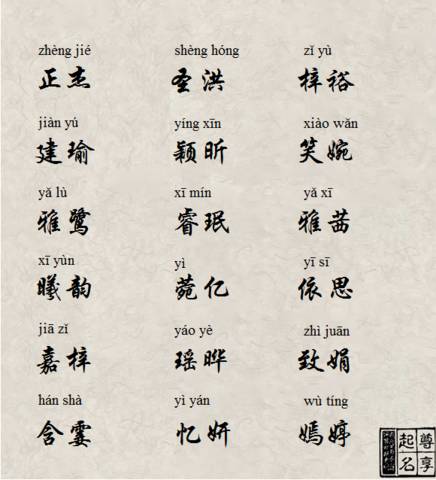 zhèng jié shèng hóng zǐ yù
正杰 圣洪 梓裕
jiàn yú yíng xīn xiào wǎn
建瑜 颖昕 笑婉
yǎ lù xī mín yǎ xī
雅鹭 睿珉 雅茜
xī yùn yì yī sī
曦韵 菀亿 依思
jiā zǐ yáo yè zhì juān
嘉梓 瑶晔 致娟
hán shà yì yán wù tíng
含霎 忆妍 嫣婷
尊享
起名